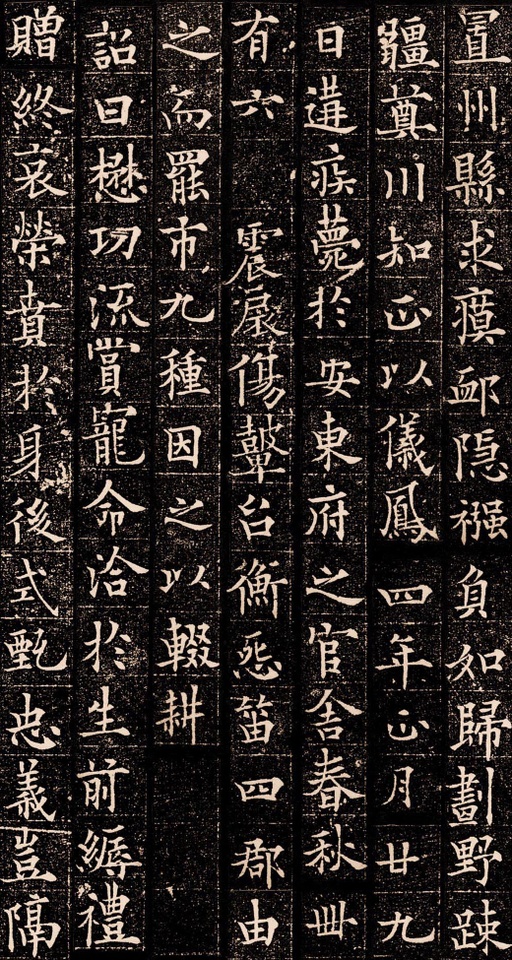 置州縣求瘼卹隐襁負如歸劃野踈
疆奠川知正以儀鳳四年正月廿九
日遘疾薨於安東府之官舍春秋卌
有六 震扆傷鼙台衡怨笛四郡由
之而罷市九種因之以輟耕
詔曰懋功流賞寵命洽於生前縟禮
贈終哀榮賁於身後式甄忠義豈隔